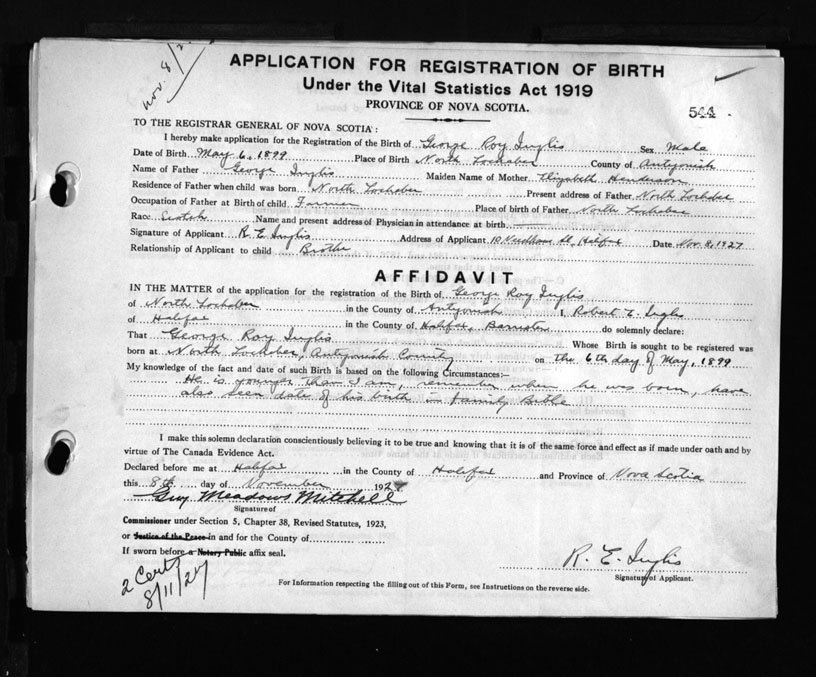 Nov. 8/2
APPLICATION FOR REGISTRATION OF BIRTH
Under the Vital Statistics Act 1919
PROVINCE OF NOVA SCOTIA.
544
TO THE REGISTRAR GENERAL OF NOVA SCOTIA:
I hereby make application for the Registration of the Birth of George Roy Inglis Sex Male
Date of Birth May 6, 1899 Place of Birth North Lochaber County of Antigonish
Name of Father George Inglis Maiden Name of Mother Elizabeth Henderson
Residence of Father when child was born North Lochaber Present address of Father North Lochaber
Occupation of Father at Birth of child Farmer Place of birth of Father North Lochaber
Race Scotch Name and present address of Physician in attendance at birth
Signature of Applicant R. E. Inglis Address of Applicant 10 Needham St, Halifax Date Nov. 8, 1927
Relationship of Applicant to child Brother
AFFIDAVIT
IN THE MATTER of the application for the registration of the Birth of George Roy Inglis
of North Lochaber in the County of Antigonish I, Robert E. Inglis
of Halifax in the County of Halifax, Barrister do solemnly declare:
That George Roy Inglis Whose Birth is sought to be registered was
born at North Lochaber, Antigonish County on the 6th day of May, 1899
My knowledge of the fact and date of such Birth is based on the following Circumstances:—
He is younger than I am, remember when he was born, have
also seen date of his birth in family Bible
I make this solemn declaration conscientiously believing it to be true and knowing that it is of the same force and effect as if made under oath and by
virtue of The Canada Evidence Act.
Declared before me at Halifax in the County of Halifax and Province of Nova Scotia
this 8th day of November 1927
Guy Meadows Mitchell
Signature of
Commissioner under Section 5, Chapter 38, Revised Statutes, 1923,
or Justice of the Peace in and for the County of
If sworn before a Notary Public affix seal.
R. E. Inglis
Signature of Applicant.
2 Certs
8/11/27
For Information respecting the filling out of this Form, see Instructions on the reverse side.